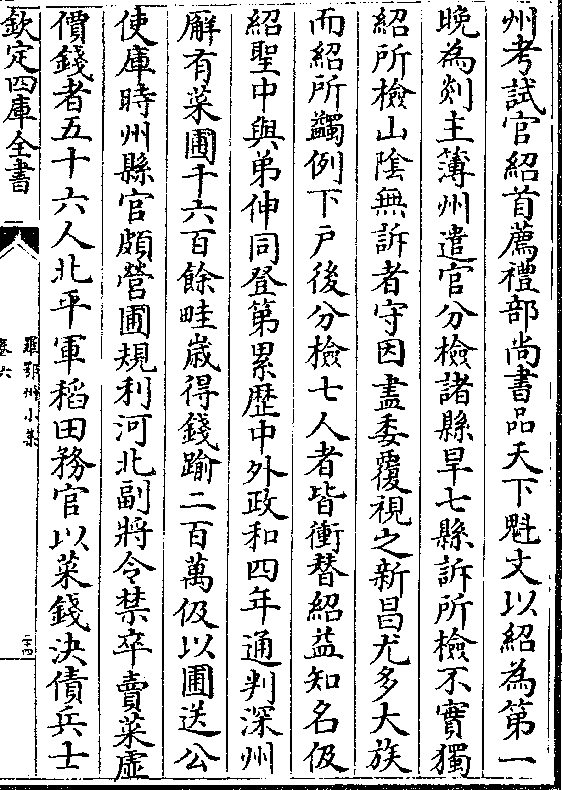 州考試官紹首薦禮部尚書品天下魁文以紹為第一
晚為剡主簿州遣官分檢諸縣旱七縣訴所檢不實獨
紹所檢山陰無訴者守因盡委覆視之新昌尤多大族
而紹所蠲例下戶後分檢七人者皆衝替紹益知名伋
紹聖中與弟伸同登第累歴中外政和四年通判深州
廨有菜圃千六百餘畦歳得錢踰二百萬伋以圃送公
使庫時州縣官頗營圃規利河北副將令禁卒賣菜虛
價錢者五十六人北平軍稻田務官以菜錢決債兵士
欽定四庫全書
羅鄂州小集
卷六
二十四